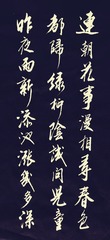 連朝花事漫相尋春色
都歸綠柳陰試問兒童
昨夜雨新添漲幾多深